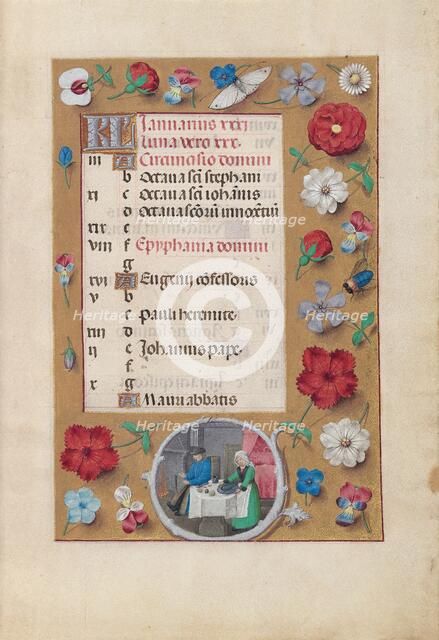 KL Januarius xxxi
Luna vero xxx.
iii A Circũcisio domini
b Octaua scī stephani
xi c Octaua scī iohānis
d Octaua scōrũ innocētiũ
xix e
viii f Epyphania domini
g
xvi A Eugenii cōfessoris
v b
c Pauli heremite
xiii d
ii e Johannis pape
f
x g
A Mauri abbatis
Heritage
Heritage
Heritage
Heritage
Heritage
Heritage
Heritage
Heritage